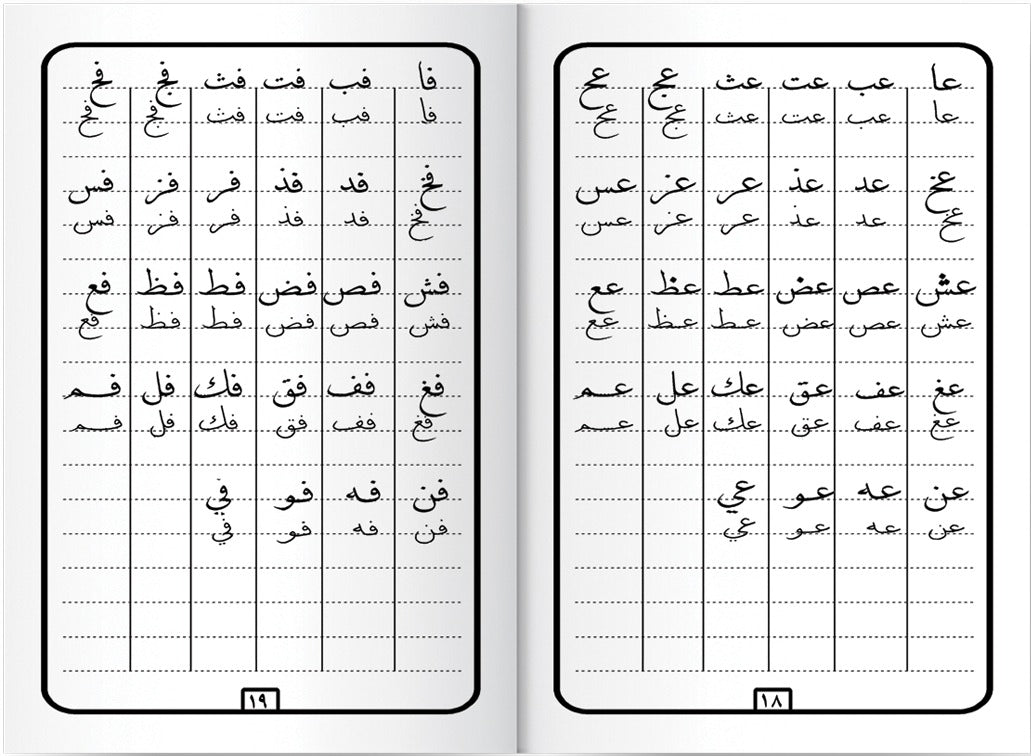 عا عب عت عث عج عح
عا عب عت عث عج عح
عخ عد عذ عر عز عس
عخ عد عذ عر عز عس
عش عص عض عط عظ عع
عش عص عض عط عظ عع
عغ عف عق عك عل عم
عغ عف عق عك عل عم
عن عه عو عي
عن عه عو عي
١٨
فا فب فت فث فج فح
فا فب فت فث فج فح
فخ فد فذ فر فز فس
فخ فد فذ فر فز فس
فش فص فض فط فظ فع
فش فص فض فط فظ فع
فغ فف فق فك فل فم
فغ فف فق فك فل فم
فن فه فو في
فن فه فو في
١٩